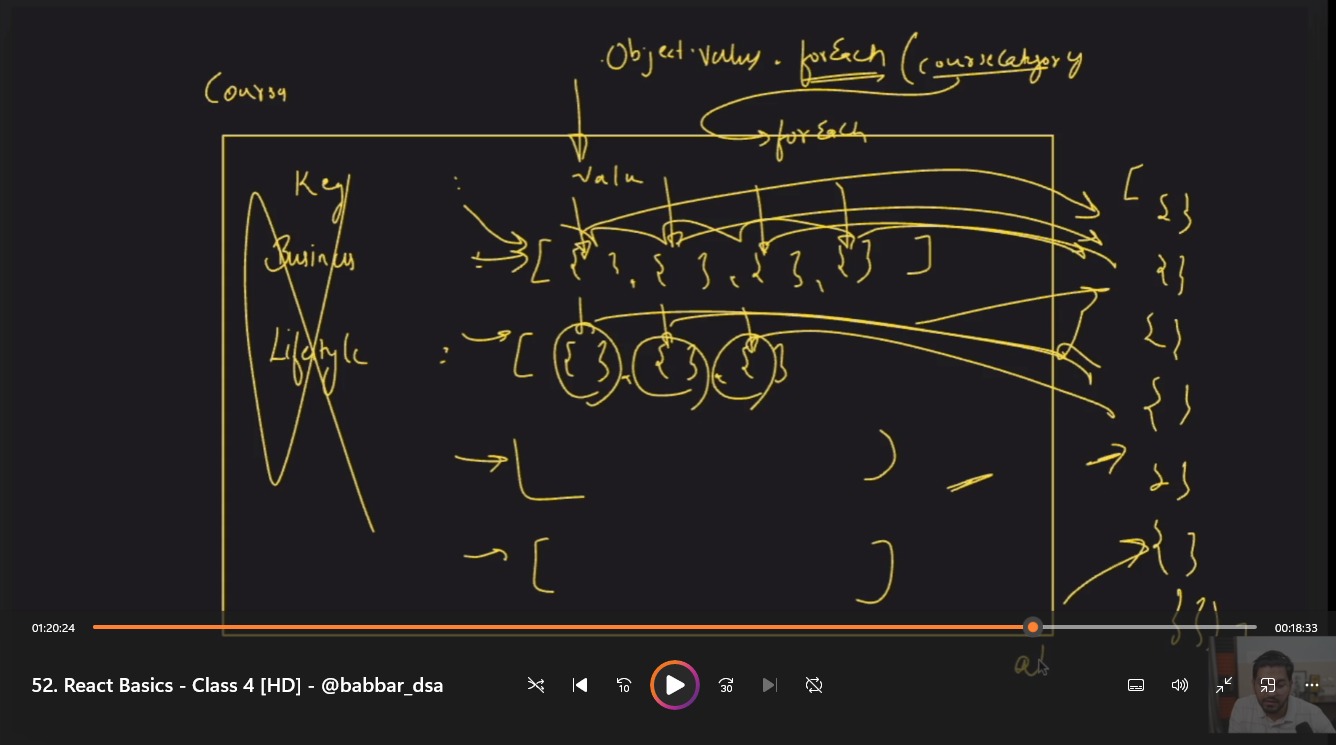 .Object.values. forEach (courseCategory
Course
forEach
Key : value
[ { }
Business : [ { }, { }, { }, { } ]
{ }
{ }
Lifestyle : [ { }, { }, { }
{ }
[ ]
{ }
[ ]
{ }
01:20:24
00:18:33
52. React Basics - Class 4 [HD] - @babbar_dsa
10
30